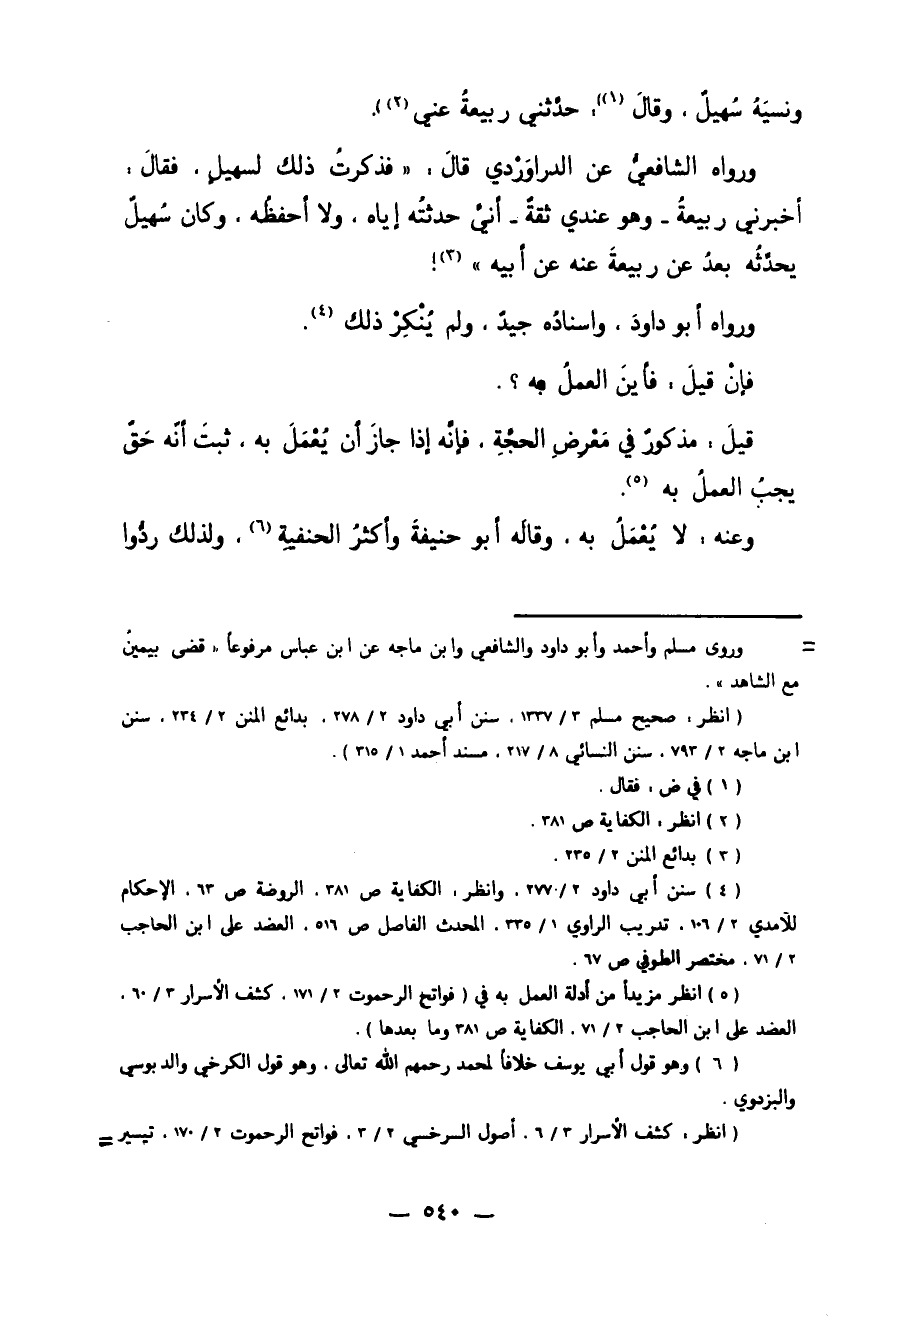 ونسيَهُ سُهيلٌ ، وقالَ (١)) : حدَّثني ربيعةُ عني (٢)) .
ورواه الشافعيُّ عن الدراوَرْدي قالَ : « فذكرتُ ذلك لسهيلٍ ، فقالَ :
أخبرني ربيعةُ - وهو عندي ثقةٌ - أنيَّ حدثتُه إياه ، ولا أحفظُه ، وكان سُهيلٌ
يحدِّثُه بعدُ عن ربيعةَ عنه عن أبيه » (٣) !
ورواه أبو داودَ ، واسنادُه جيدٌ ، ولم يُنْكِرْ ذلك (٤) .
فإنْ قيلَ : فأينَ العملُ به ؟ .
قيلَ : مذكورٌ في مَعْرِضِ الحجَّةِ ، فإنَّه إذا جازَ أن يُعْمَلَ به ، ثبتَ أنَّه حَقٌ
يجبُ العملُ به (٥) .
وعنه : لا يُعْمَلُ به ، وقالَه أبو حنيفةَ وأكثرُ الحنفيةِ (٦) ، ولذلك ردُّوا
= وروى مسلم وأحمد وأبو داود والشافعي وابن ماجه عن ابن عباس مرفوعاً « قضى بيمينٌ
مع الشاهد » .
( انظر : صحيح مسلم ٣ / ١٣٣٧ ، سنن أبي داود ٢ / ٢٧٨ ، بدائع المنن ٢ / ٢٣٤ ، سنن
ابن ماجه ٢ / ٧٩٣ ، سنن النسائي ٨ / ٢١٧ ، مسند أحمد ١ / ٣١٥ ) .
( ١ ) في ض : فقال .
( ٢ ) انظر : الكفاية ص ٣٨١ .
( ٣ ) بدائع المنن ٢ / ٢٣٥ .
( ٤ ) سنن أبي داود ٢ / ٢٧٧ ، وانظر : الكفاية ص ٣٨١ ، الروضة ص ٦٣ ، الإحكام
للآمدي ٢ / ١٠٦ ، تدريب الراوي ١ / ٣٣٥ ، المحدث الفاصل ص ٥١٦ ، العضد على ابن الحاجب
٢ / ٧١ ، مختصر الطوفي ص ٦٧ .
( ٥ ) انظر مزيداً من أدلة العمل به في ( فواتح الرحموت ٢ / ١٧١ ، كشف الأسرار ٣ / ٦٠ ،
العضد على ابن الحاجب ٢ / ٧١ ، الكفاية ص ٣٨١ وما بعدها ) .
( ٦ ) وهو قول أبي يوسف خلافاً لمحمد رحمهم الله تعالى ، وهو قول الكرخي والدبوسي
والبزدوي .
( انظر : كشف الأسرار ٣ / ٦ ، أصول السرخسي ٢ / ٣ ، فواتح الرحموت ٢ / ١٧٠ ، تيسير =
— ٥٤٠ —